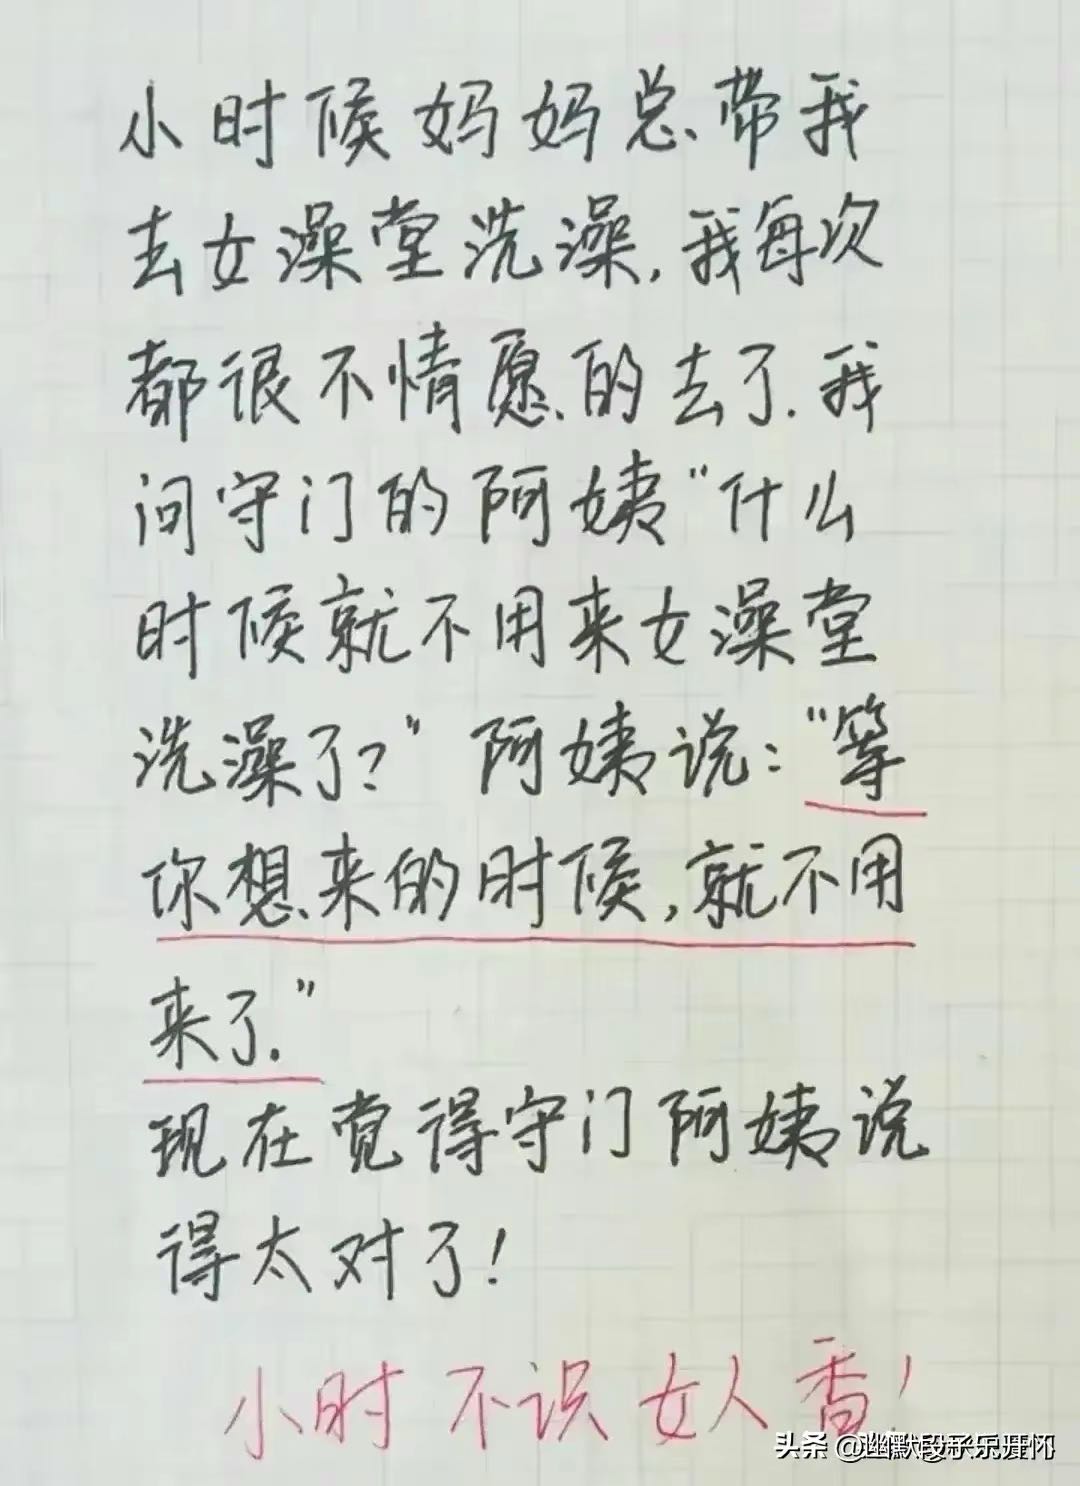 小时候妈妈总带我
去女澡堂洗澡,我每次
都很不情愿的去了.我
问守门的阿姨"什么
时候就不用来女澡堂
洗澡了?"阿姨说:"等
你想来的时候,就不用
来了."
现在觉得守门阿姨说
得太对了!
小时不识女人香!
头条 @幽默段子乐开怀